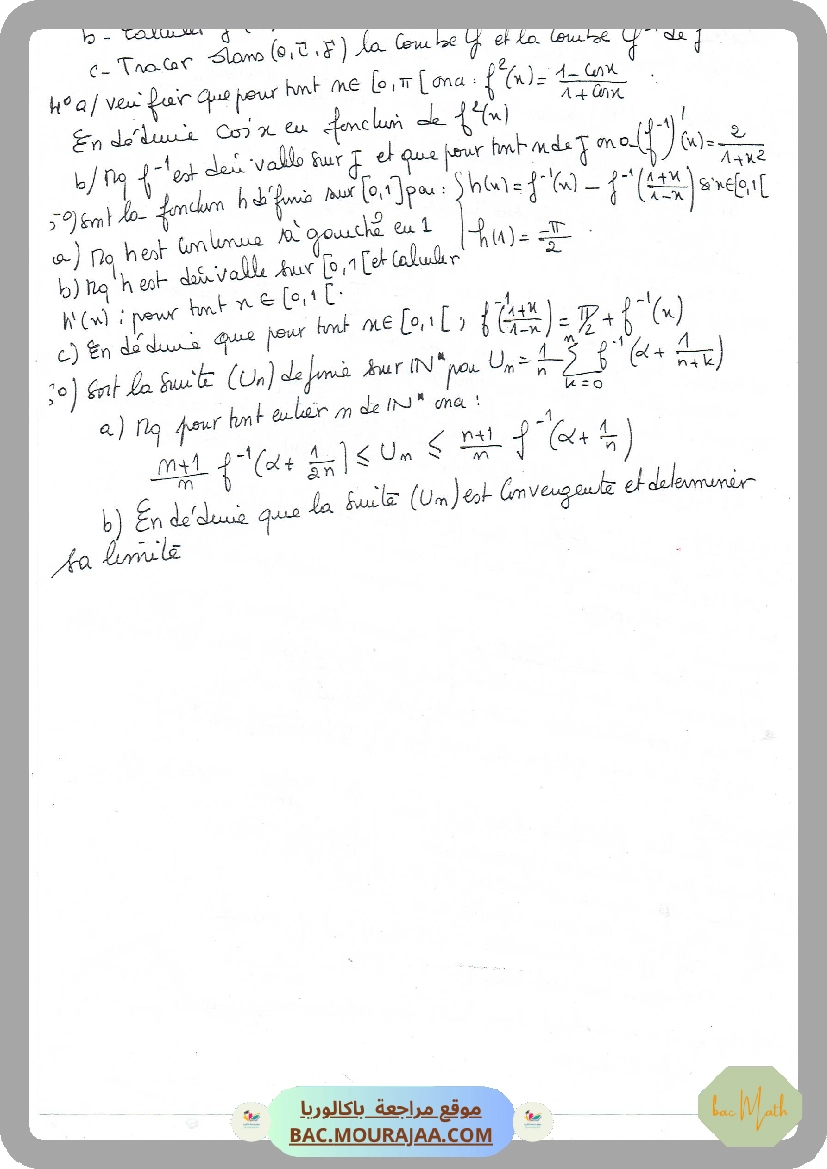 b - Calculer
c - Tracer dans (0, i, j) la courbe φ et la courbe φ⁻¹ de f
4° a/ verifier que pour tout x ∈ [0, π[ on a : f²(x) = (1 - cos x)/(1 + cos x)
En déduire cos x en fonction de f²(x)
b/ Mq f⁻¹ est derivable sur J et que pour tout x de J on a (f⁻¹)'(x) = 2/(1 + x²)
5°) soit la fonction h définie sur [0,1] par : { h(x) = f⁻¹(x) - f⁻¹((1+x)/(1-x)) si x ∈ [0,1[
h(1) = -π/2
a) Mq h est continue à gauche en 1
b) Mq h est derivable sur [0,1[ et calculer
h'(x) ; pour tout x ∈ [0,1[.
c) En déduire que pour tout x ∈ [0,1[ ; f⁻¹((1+x)/(1-x)) = π/2 + f⁻¹(x)
6°) Soit la suite (Un) definie sur IN* par Un = 1/n Σ_{k=0}^{n} f⁻¹(α + 1/(n+k))
a) Mq pour tout entier n de IN* on a :
(n+1)/n f⁻¹(α + 1/2n) ≤ Un ≤ (n+1)/n f⁻¹(α + 1/n)
b) En déduire que la suite (Un) est Convergente et determiner
sa limite
موقع مراجعة باكالوريا
BAC.MOURAJAA.COM
bac Math